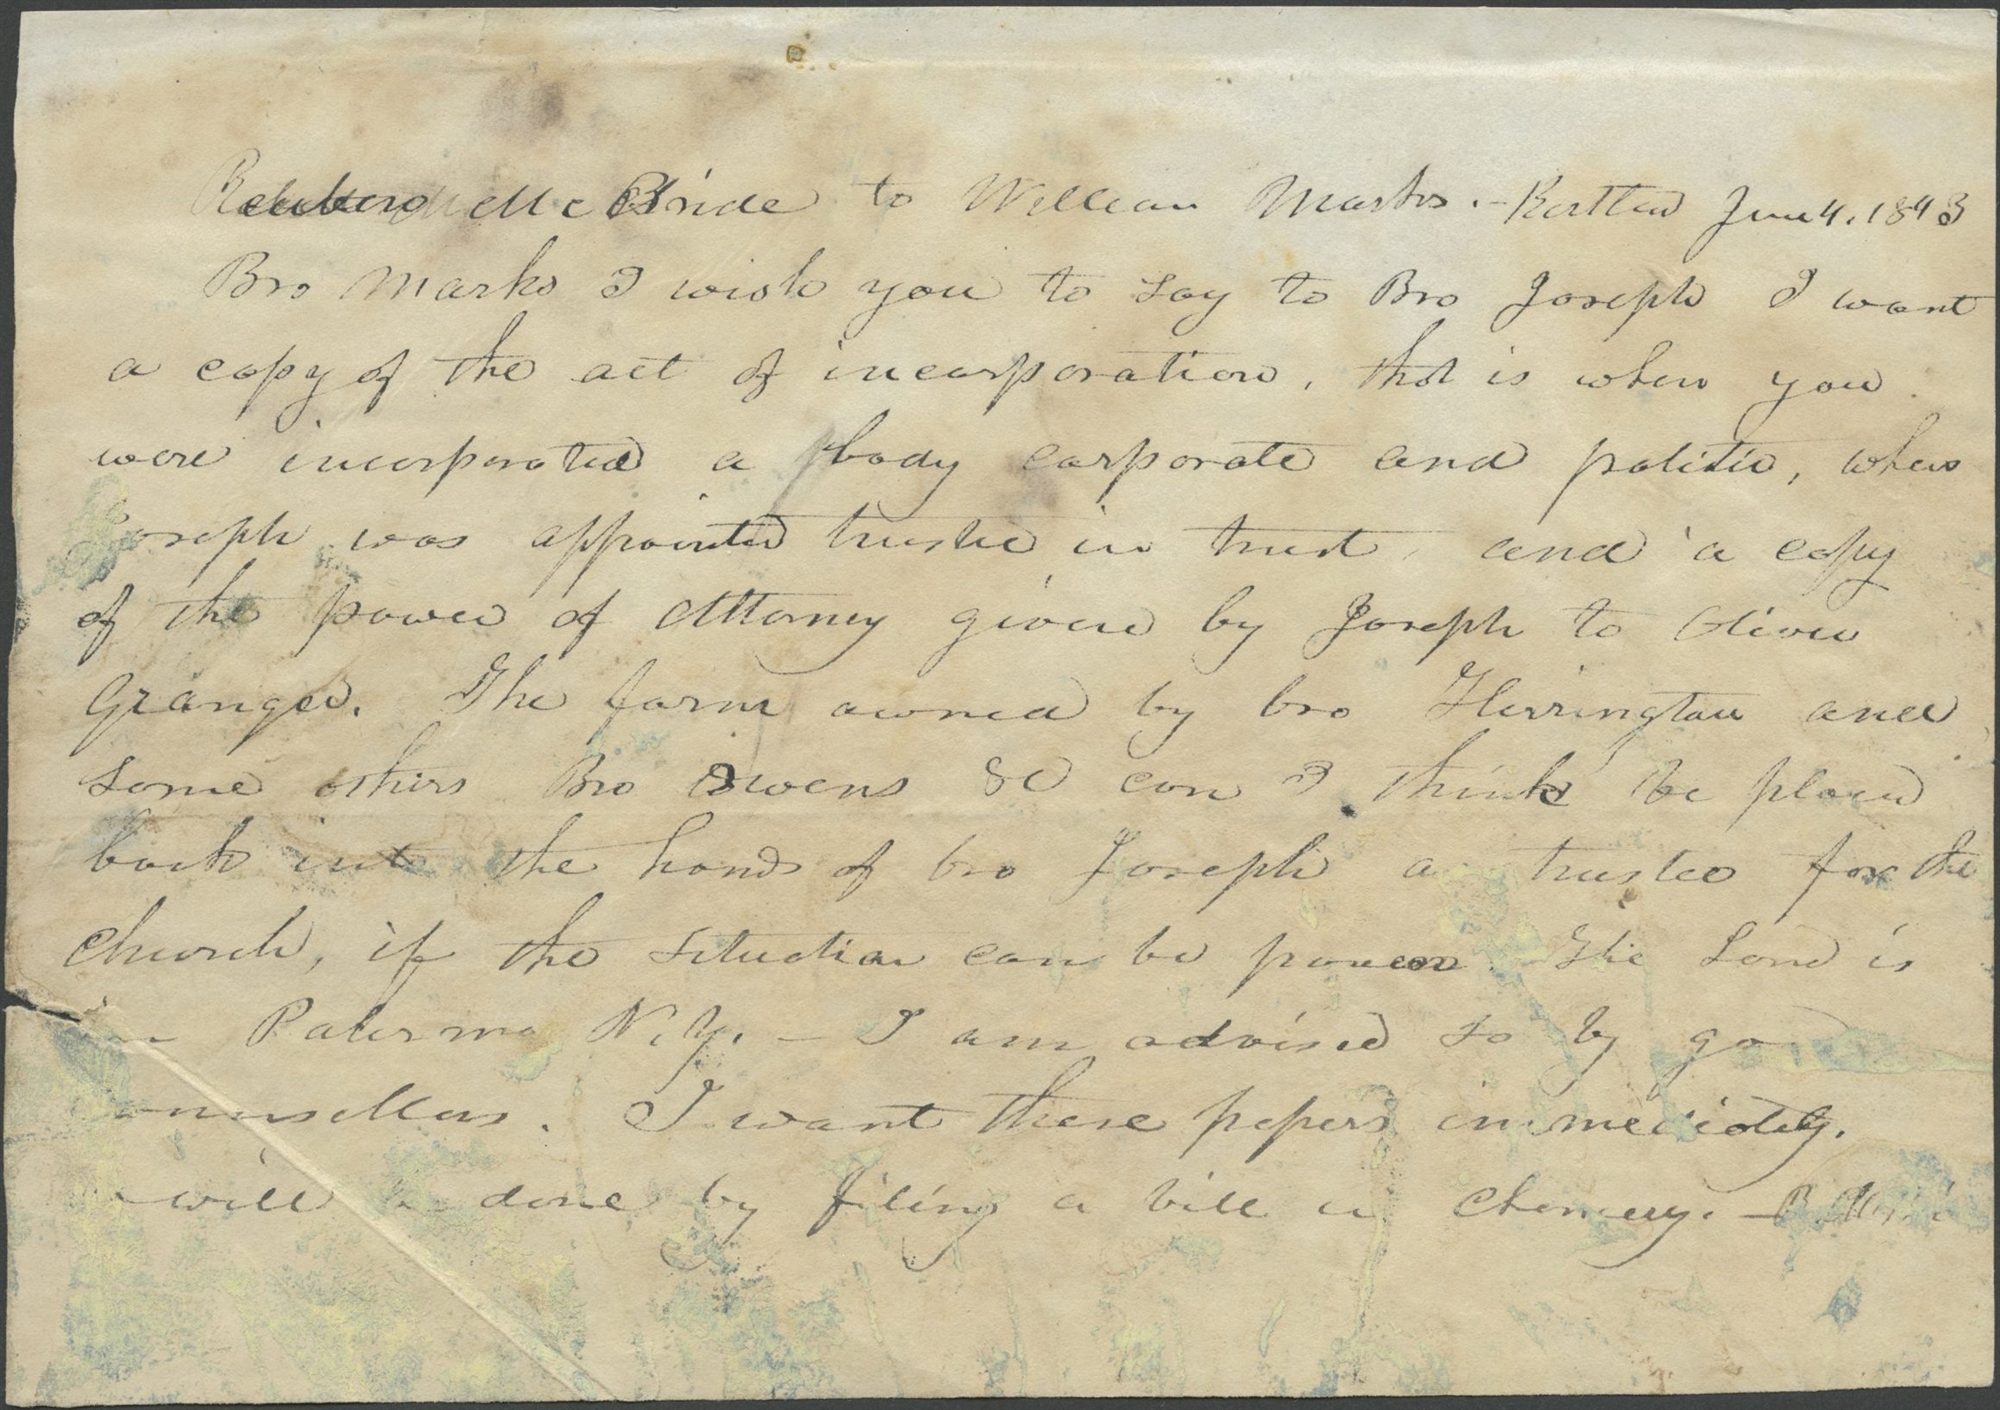 Reuben McBride to William Marks. - Kirtland June 4, 1843
Bro Marks I wish you to say to Bro Joseph I want
a copy of the act of incorporation, that is when you
were incorporated a body corporate and politic, when
Joseph was appointed trustee in trust, and a copy
of the power of Attorney given by Joseph to Oliver
Granger. The farm owned by bro Herrington and
some others Bro Owens &c can I think be placed
back into the hands of bro Joseph a trustee for the
church, if the situation can be The Land is
in Palermo N.Y. - I am advised so by
counsellors. I want these papers immediately.
will be done by filing a bill in Chancery. -